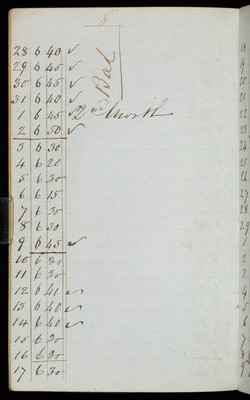 8
Bal
28 6 40 ✓
29 6 45 ✓
30 6 45 ✓
31 6 40 ✓
1 6 45 ✓ 2nd Month
2 6 50 ✓
3 6 30
4 6 20
5 6 30
6 6 15
7 6 30
8 6 30
9 6 45 ✓
10 6 30
11 6 30
12 6 40 ✓
13 6 40 ✓
14 6 40 ✓
15 6 30
16 6 30
17 6 30